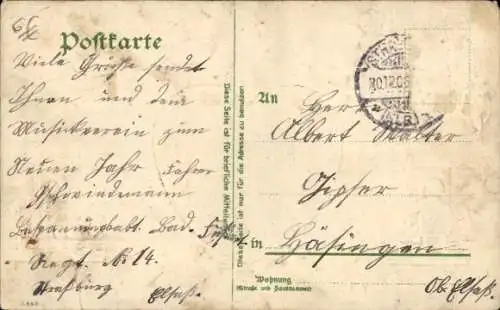 Postkarte
Viele Grüsse sendet
Ihnen und dem
Musickverein zum
Neuen Jahr Fahrer
Gschwindemann
Bespannungsabt. Bad.
Regt. No 14.
Straßburg Elsaß.
Diese Seite ist für briefliche Mitteilungen
Diese Seite ist nur für die Adresse zu benutzen
An
Herr
Albert Walter
Gipser
in Häsingen
Wohnung
(Straße und Hausnummer)
Ob. Elsaß.
30.12.06
(ELS.)